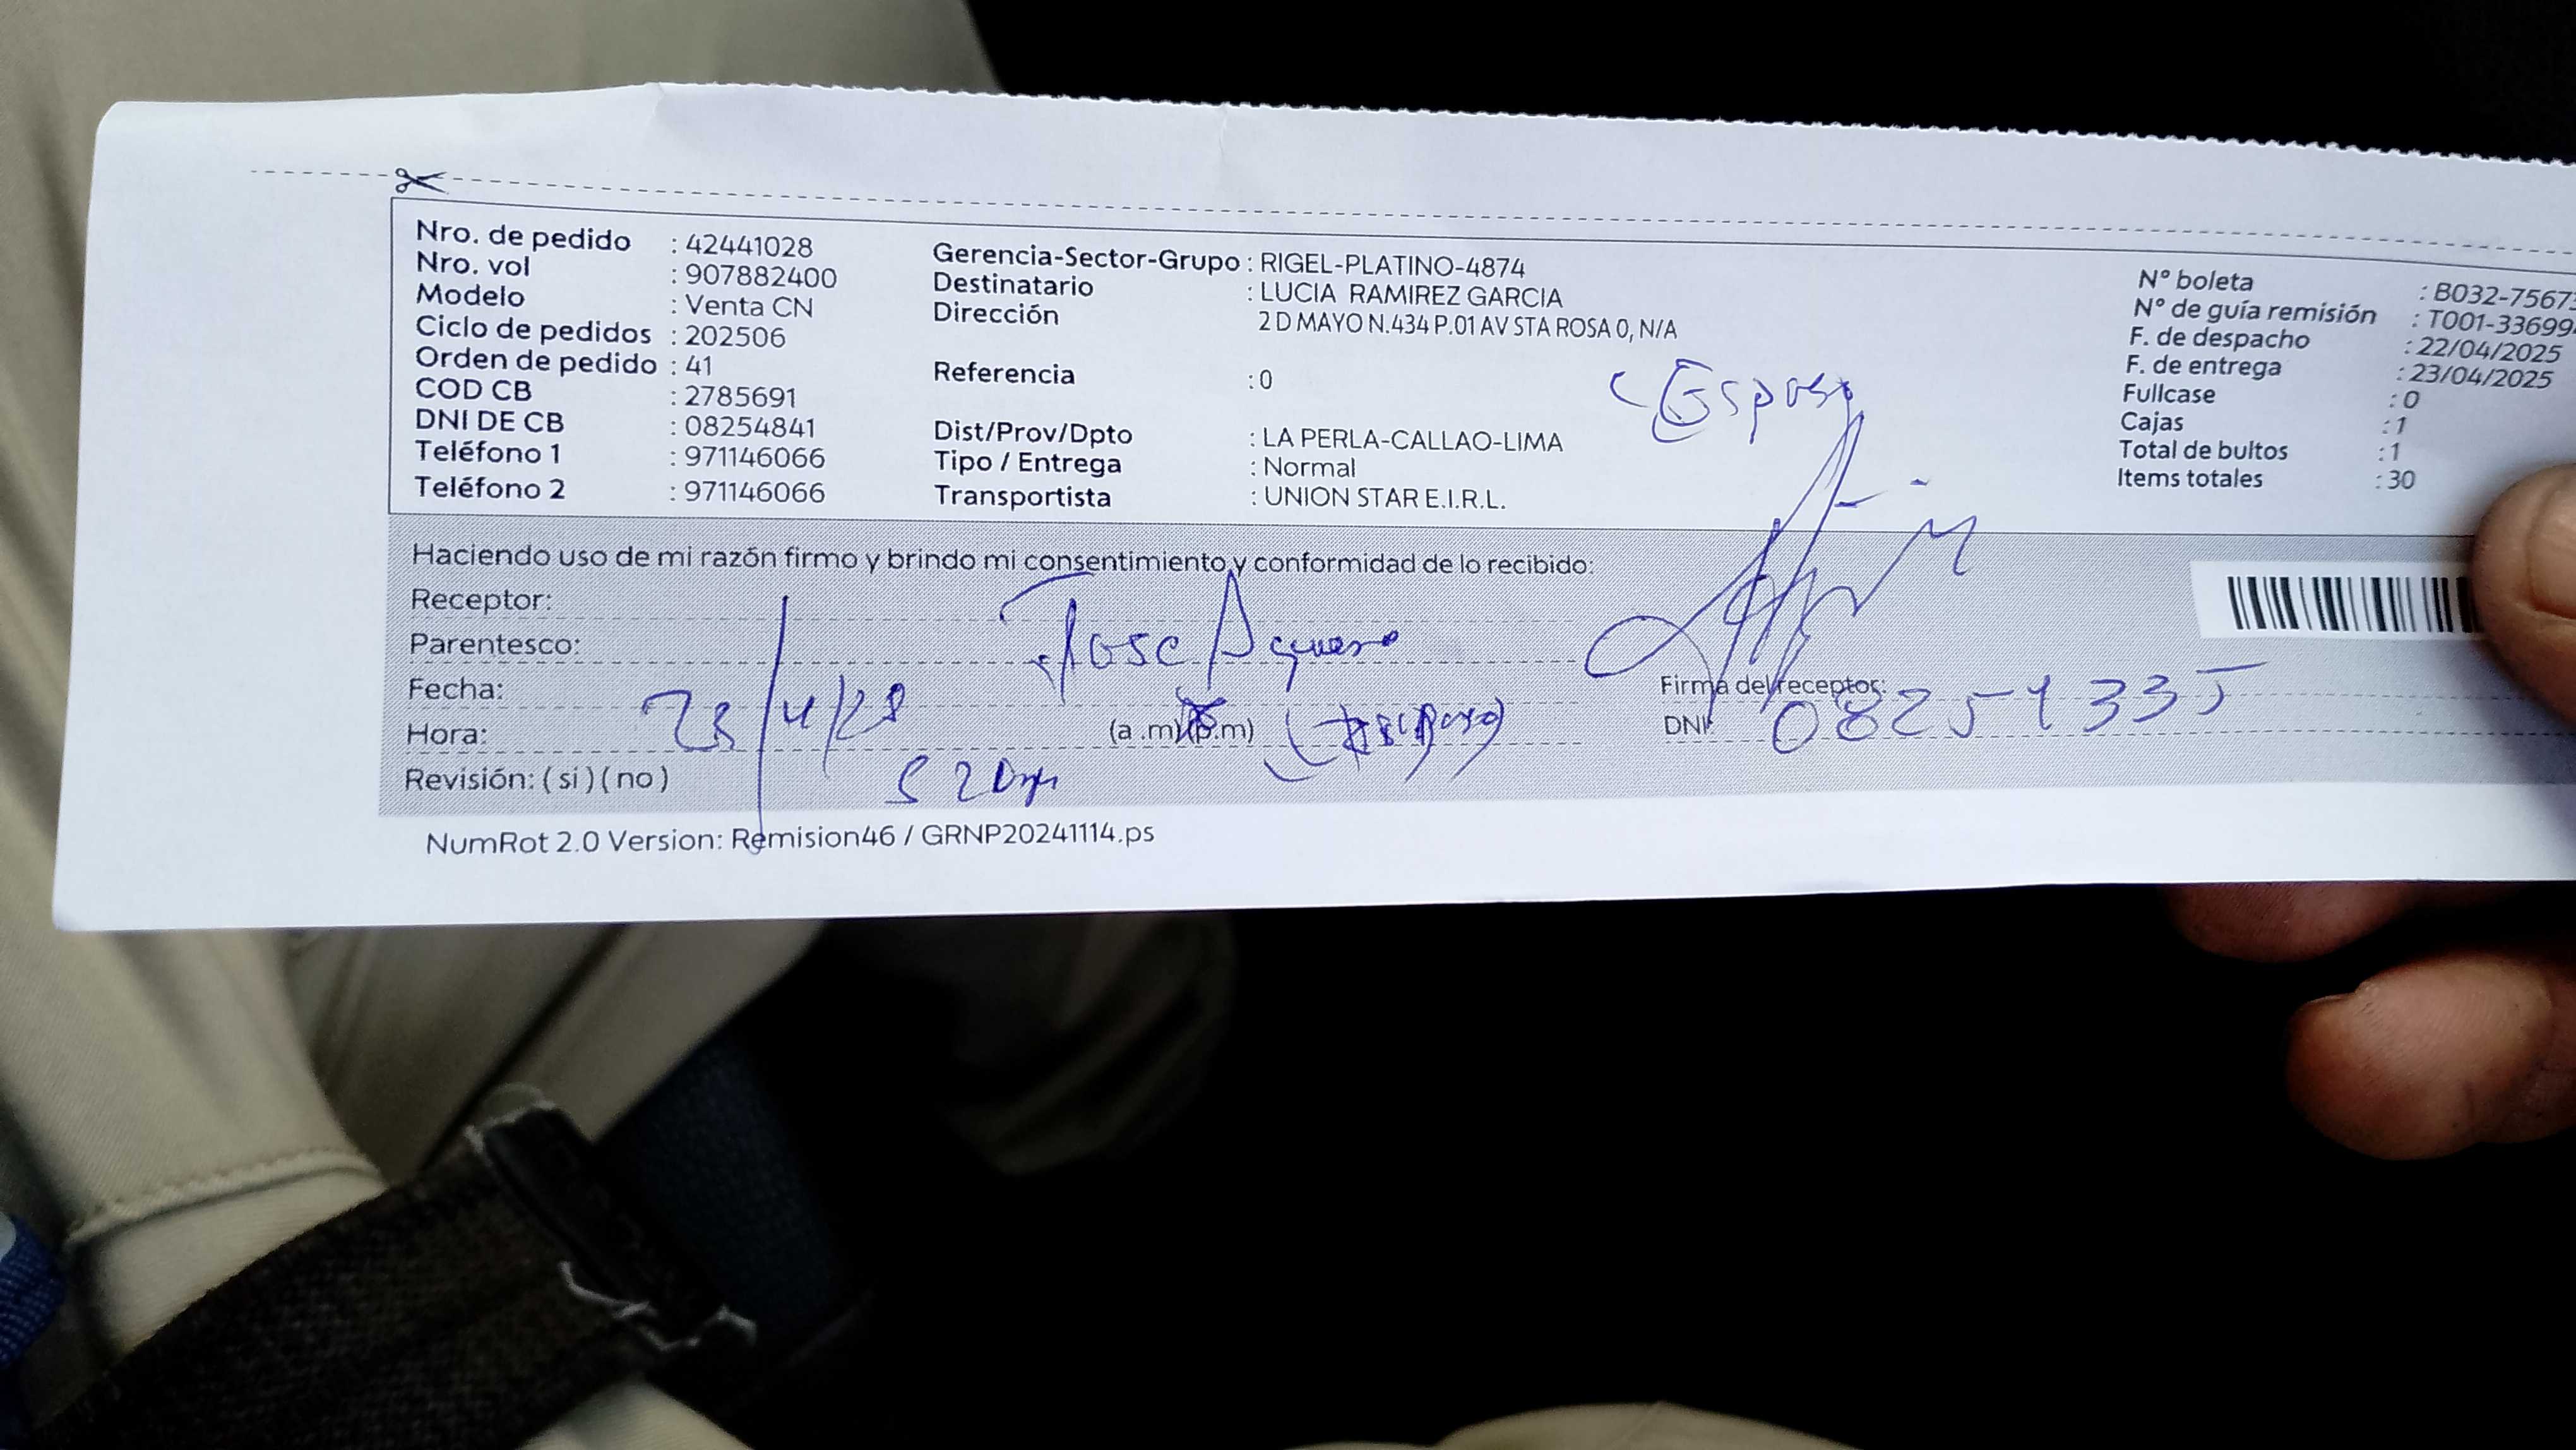 Nro. de pedido : 42441028
Nro. vol : 907882400
Modelo : Venta CN
Ciclo de pedidos : 202506
Orden de pedido : 41
COD CB : 2785691
DNI DE CB : 08254841
Teléfono 1 : 971146066
Teléfono 2 : 971146066
Gerencia-Sector-Grupo : RIGEL-PLATINO-4874
Destinatario : LUCIA RAMIREZ GARCIA
Dirección 2 D MAYO N.434 P.01 AV STA ROSA 0, N/A
Referencia : 0
Dist/Prov/Dpto : LA PERLA-CALLAO-LIMA
Tipo / Entrega : Normal
Transportista : UNION STAR E.I.R.L.
Esposo
N° boleta : B032-7567
N° de guía remisión : T001-33699
F. de despacho : 22/04/2025
F. de entrega : 23/04/2025
Fullcase : 0
Cajas : 1
Total de bultos : 1
Items totales : 30
Haciendo uso de mi razón firmo y brindo mi consentimiento y conformidad de lo recibido:
Receptor:
Parentesco: Jose Aguero
Fecha:
Hora: (a .m) (p.m)
Revisión: ( si ) ( no )
Firma del receptor:
DNI: 08254335
NumRot 2.0 Version: Remision46 / GRNP20241114.ps